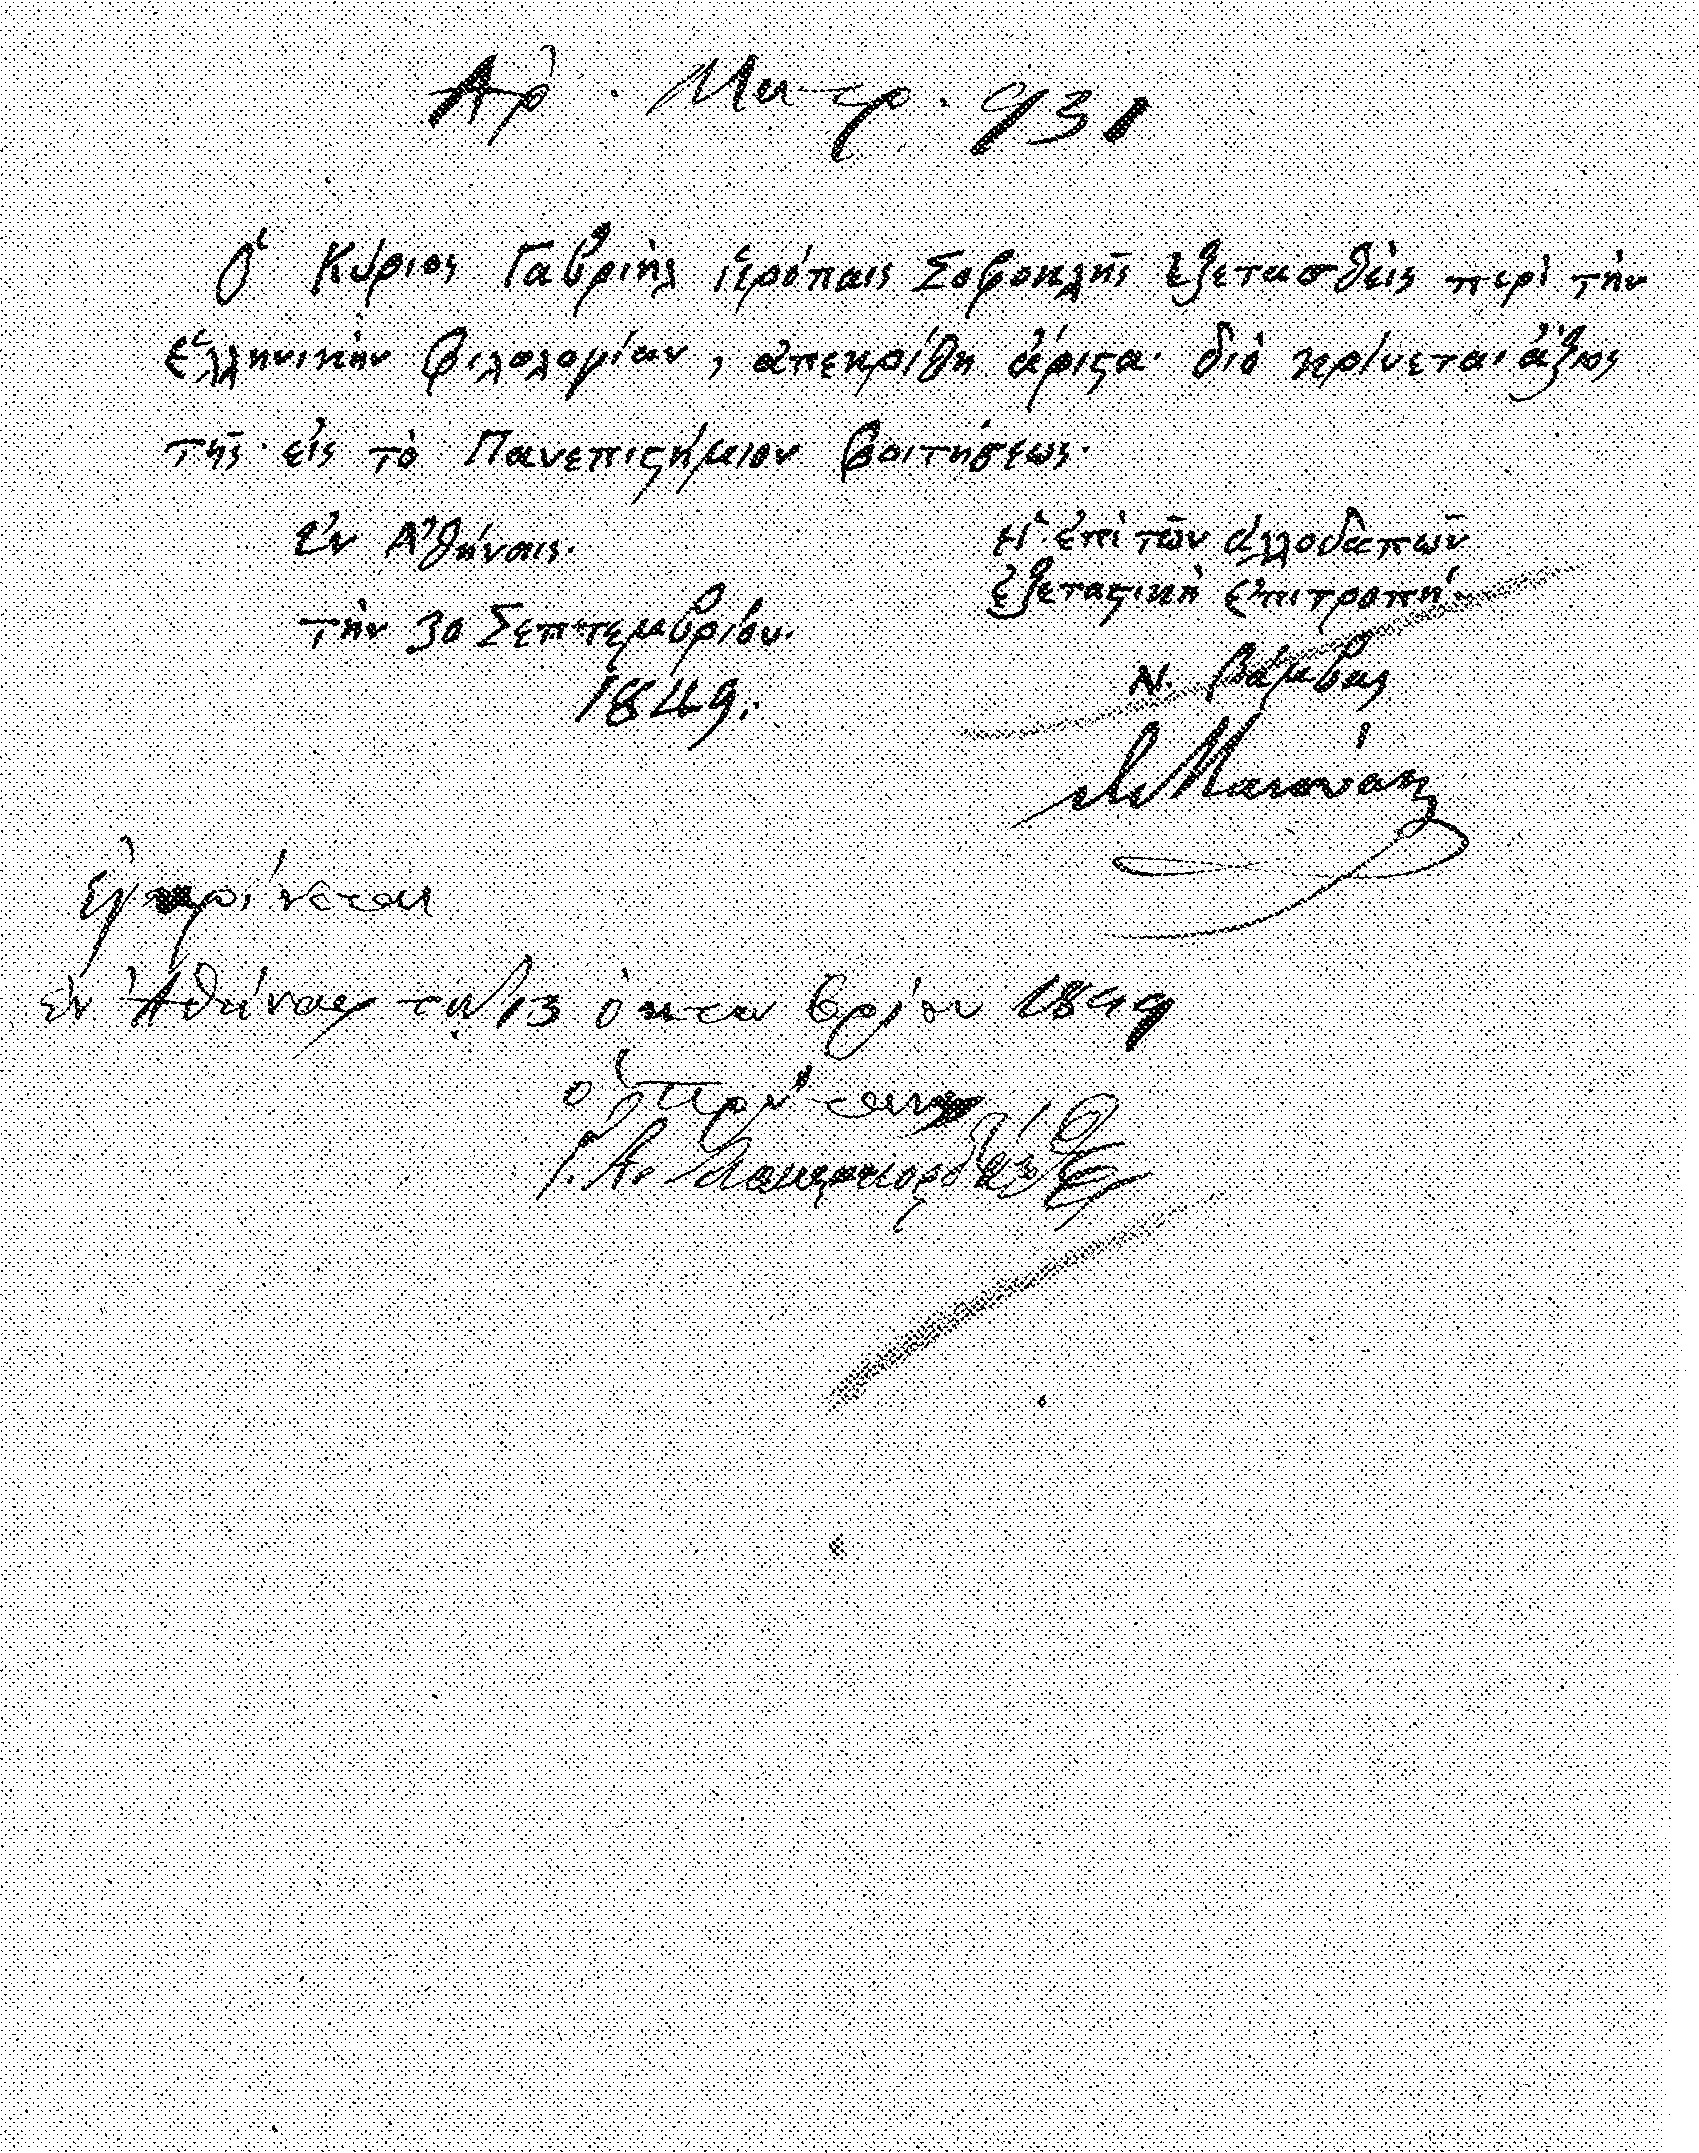 Ἀρ. Μητρ. 931
Ὁ Κύριος Γαβριὴλ ἱερόπαις Σοφοκλῆς ἐξετασθεὶς περὶ τὴν
ἑλληνικὴν φιλολογίαν, ἀπεκρίθη ἄριςα· διὸ κρίνεται ἄξιος
τῆς εἰς τὸ Πανεπιςήμιον φοιτήσεως.
Ἐν Ἀθήναις.
τὴν 30 Σεπτεμβρίου.
1849.
Ἡ ἐπὶ τῶν ἀλλοδαπῶν
ἐξεταςικὴ ἐπιτροπή.
Ν. Βάμβας
Ἐγκρίνεται
ἐν Ἀθήναις τῇ 13 Ὀκτωβρίου 1849
ὁ πρύτανις